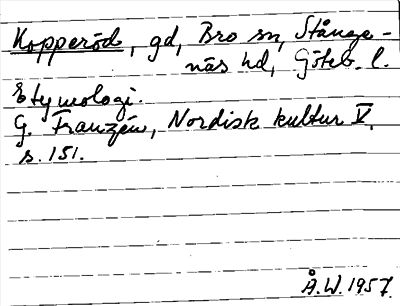 Kopperöd, gd, Bro sn, Stånge-
näs hd, Göteb. l.
Etymologi.
G. Franzén, Nordisk kultur V,
s. 151.
Å.W. 1957.